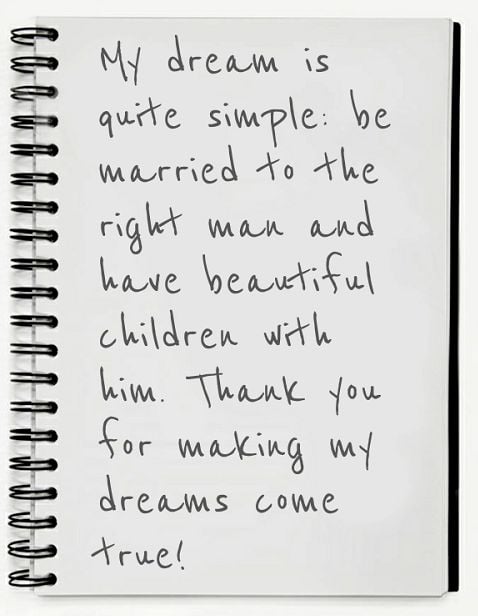 My dream is
quite simple: be
married to the
right man and
have beautiful
children with
him. Thank you
for making my
dreams come
true!